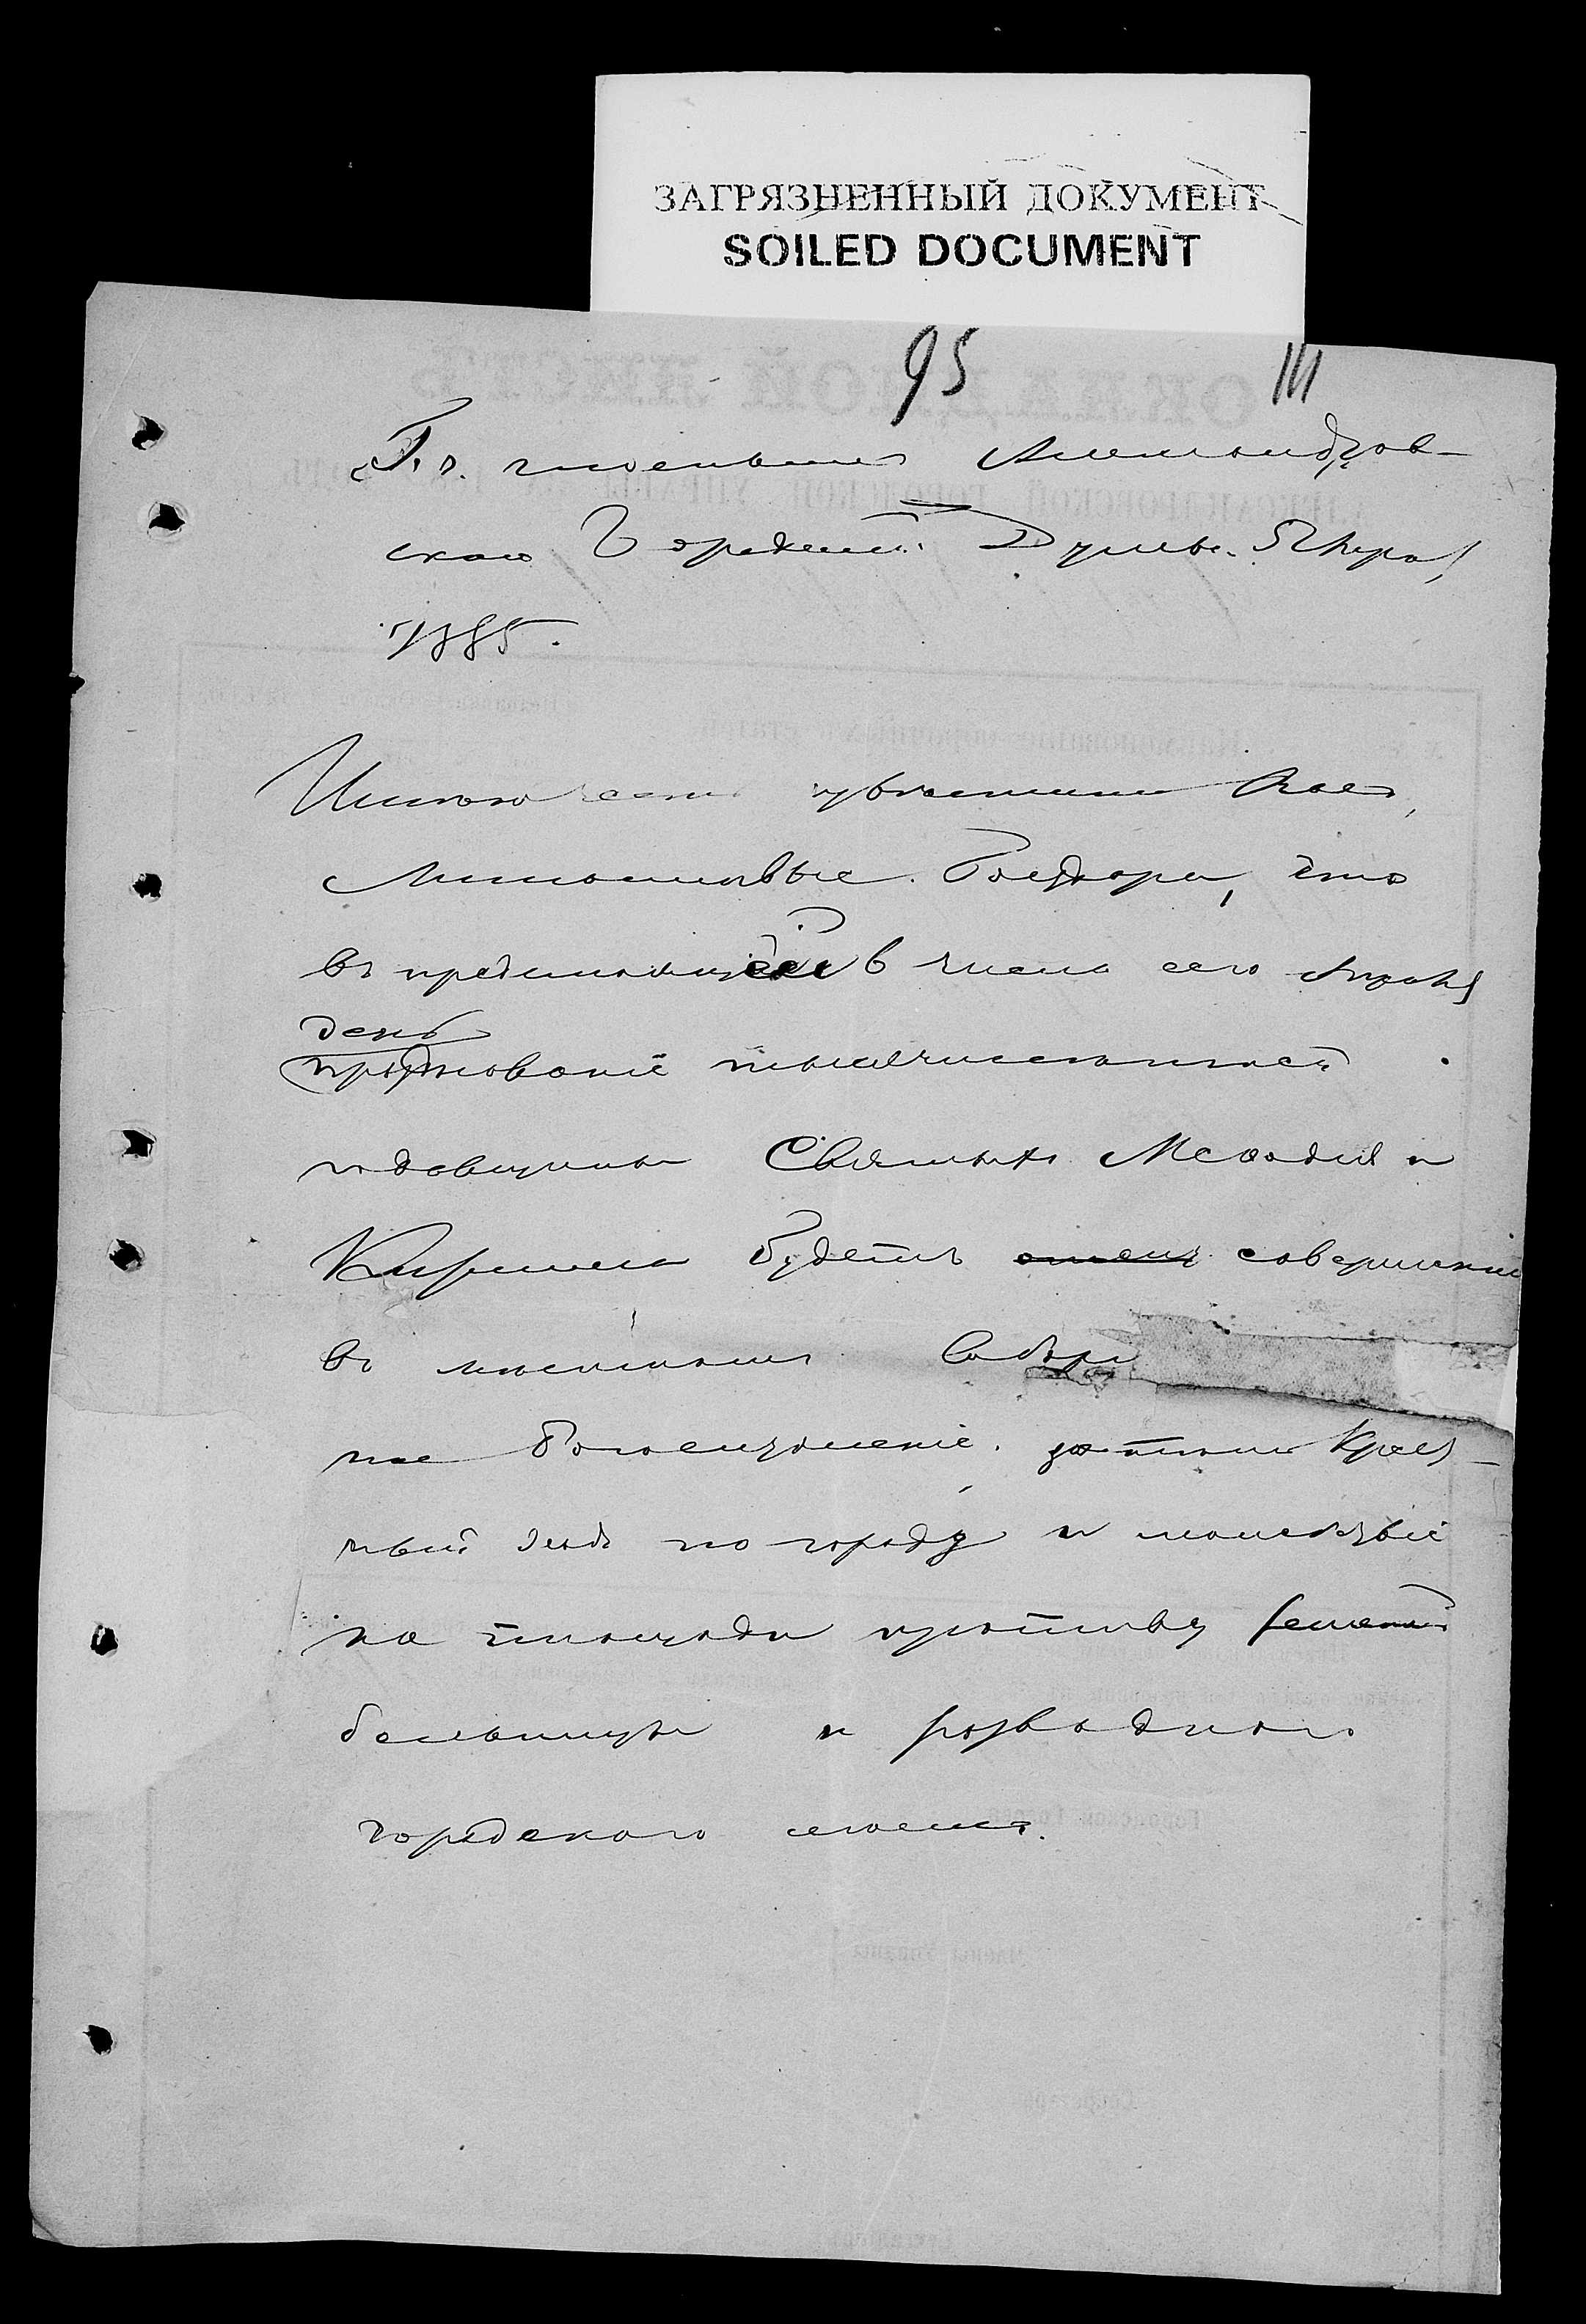 ЗАГРЯЗНЕННЫЙ ДОКУМЕНТ
SOILED DOCUMENT
95 111
Г.г. гласнымъ Александров-
ской Городской Думы. 5 Апрѣля
1885.
Имѣю честь увѣдомить Васъ,
Милостивые Государи, что
въ предстоящій 6 числа сего Апрѣля
день
празднованія тысячелѣтней
годовщины Святыхъ Меѳодія и
Кирилла будетъ совершено
въ мѣстномъ Собор
ное Богослуженіе, затѣмъ Крест-
ный ходъ по городу и молебствіе
на площади противу земской
больницы и
городского